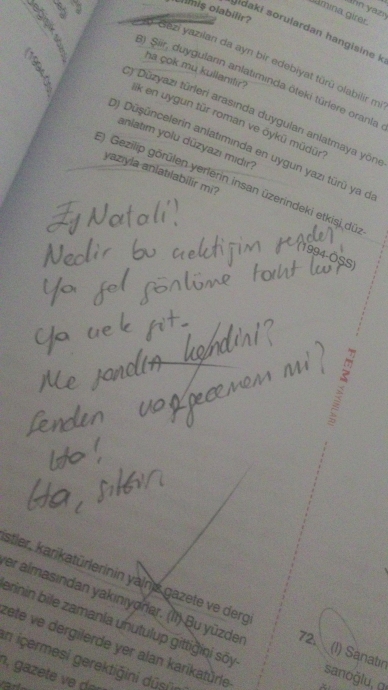 gıdaki sorulardan hangisine ka
enmiş olabilir?
Gezi yazıları da ayrı bir edebiyat türü olabilir mi
B) Şiir, duyguların anlatımında öteki türlere oranla d
ha çok mu kullanılır?
C) Düzyazı türleri arasında duyguları anlatmaya yöne-
lik en uygun tür roman ve öykü müdür?
D) Düşüncelerin anlatımında en uygun yazı türü ya da
anlatım yolu düzyazı mıdır?
E) Gezilip görülen yerlerin insan üzerindeki etkisi düz-
yazıyla anlatılabilir mi?
(1994-ÖSS)
Ey Natali!
Nedir bu çektiğim senden,
Ya gel gönlüme taht kur
Ya çek git.
Ne sandın kendini?
Senden vazgeçemem mi?
Ha!
Ha, siktir.
FEM YAYINLARI
istler, karikatürlerinin yalnız gazete ve dergi
yer almasından yakınıyorlar. (II) Bu yüzden
lerinin bile zamanla unutulup gittiğini söy-
zete ve dergilerde yer alan karikatürle-
an içermesi gerektiğini düşün
n, gazete ve da
72.
(I) Sanatın
sanoğlu, g